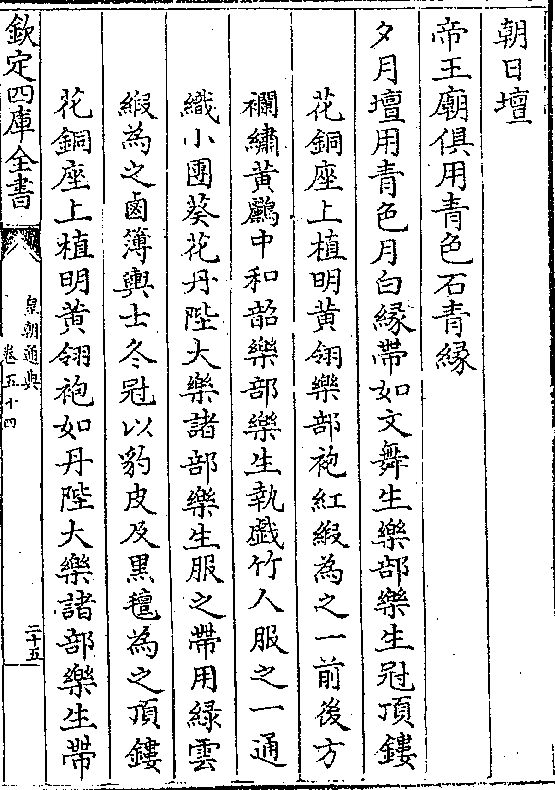 朝日壇
帝王廟俱用青色石青緣
夕月壇用青色月白緣帶如文舞生樂部樂生冠頂鏤
花銅座上植明黃翎樂部袍紅緞為之一前後方
襴繡黃鸝中和韶樂部樂生執戲竹人服之一通
織小團葵花丹陛大樂諸部樂生服之帶用綠雲
緞為之鹵簿輿士冬冠以豹皮及黑氊為之頂鏤
花銅座上植明黃翎袍如丹陛大樂諸部樂生帶
欽定四庫全書
皇朝通典
卷五十四
二十五